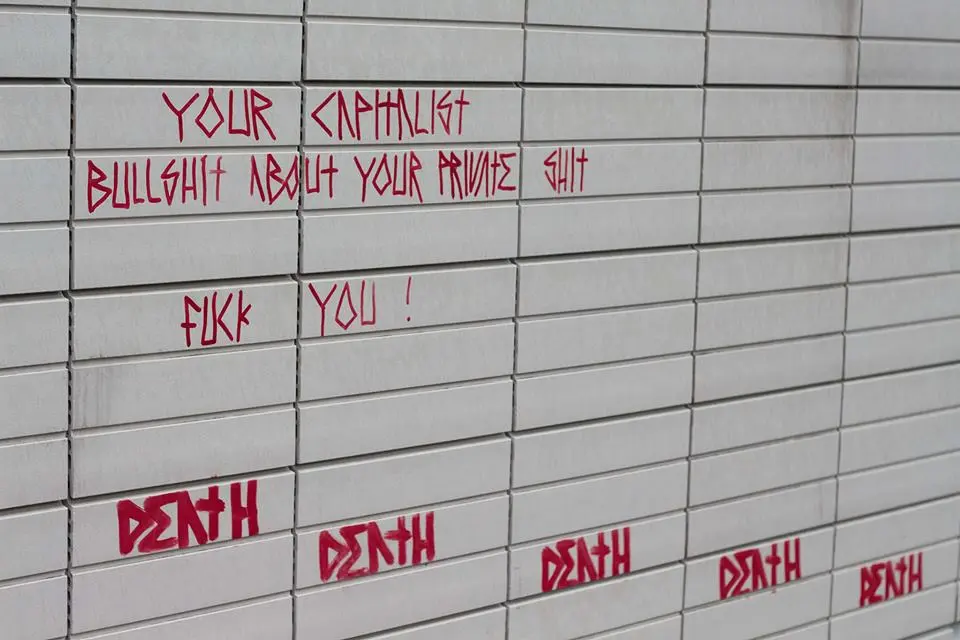 YOUR CAPITALIST
BULLSHIT ABOUT YOUR PRIVATE SHIT
FUCK YOU !
DEATH DEATH DEATH DEATH DEATH